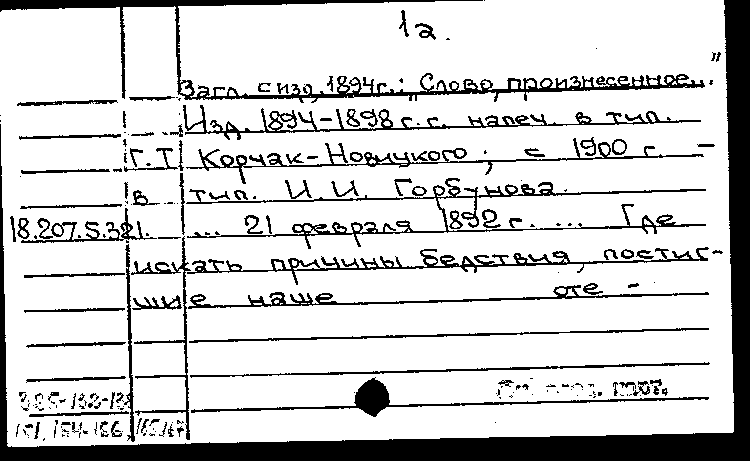 1а.
Загл. с изд. 1894г.: „Слово, произнесенное..."
Изд. 1894-1898 г.г. напеч. в тип.
Г.Т. Корчак-Новицкого; с 1900 г. -
в тип. И.И. Горбунова.
18.207.5.321. ... 21 февраля 1892 г. ... Где
искать причины бедствия, постиг-
шие наше оте -
151, 154-156, 165,167